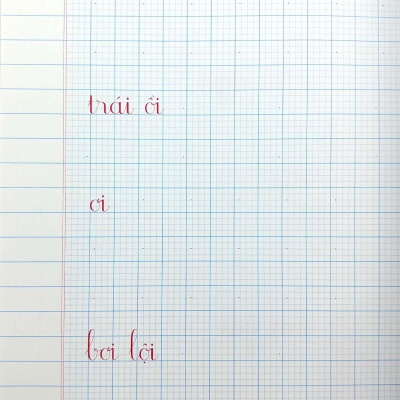 trái ổi
ơi
bơi lội